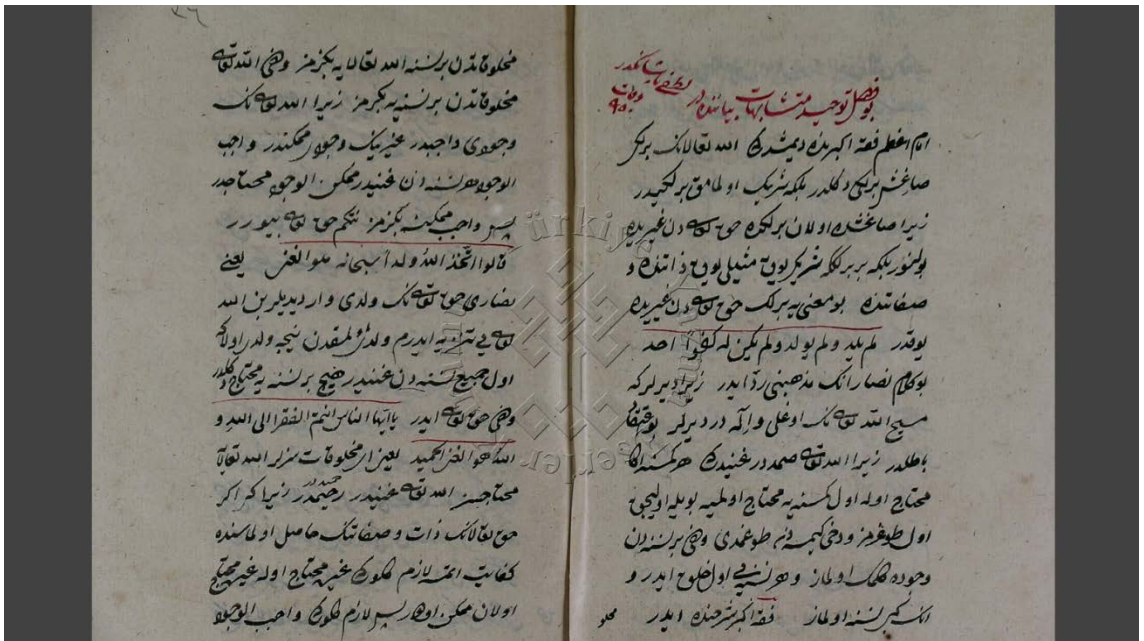 بو فصل توحید متشابهات بیاننده در
امام اعظم فقه اکبرنده دیمشدرکه الله تعالانک برلکی
صاغش برلکی دکلدر بلکه شریک اولمامق برلکیدر
زیرا صاغشده اولان برلکده حق تعالی دن غیریده
بولنور بلکه بر برلککه شریک یوق مثیلی یوق ذاتنده و
صفاتنده بو معنی یه برلک حق تعالی دن غیریده
یوقدر لم یلد ولم یولد ولم یکن له کفوا احد
بو کلام نصارانک مذهبنی رد ایدر زیرا دیرلرکه
مسیح الله تعالی نک اوغلی و الٓه در دیرلر بو اعتقاد
باطلدر زیرا الله تعالی صمددر غنیدرکه هر کمسه اکا
محتاج اوله اول کمسیه محتاج اولمیه بویله اولیجق
اول طوغرمز ودخی کیمسه دن طوغمدی ودخی بر نسنه دن
وجوده کلمک اولماز وهر نسنه یی اول خلق ایدر و
انک کبی نسنه اولماز فقه اکبر شرحنده ایدر
مخلو
٢٦
مخلوقاتدن بر نسنه الله تعالایه بکزمز ودخی الله تعالی
مخلوقاتدن بر نسنه یه بکزمز زیرا الله تعالی نک
وجودی واجبدر غیرینک وجودی ممکندر و واجب
الوجود هر نسنه دن غنیدر ممکن الوجود محتاجدر
پس واجب ممکنه بکزمز نتکم حق تعالی بیورر
قالوا اتخذ الله ولدا سبحانه هو الغنی یعنی
نصاری حق تعالی نک ولدی وار دیدیلر بن الله
تعالی یی تنزیه ایدرم ولدی اولمقدن نیجه ولد اولا که
اول جمیع نسنه دن غنیدر هیچ بر نسنه یه محتاج دکلدر
ودخی حق تعالی ایدر یا ایها الناس انتم الفقرا الی الله و
الله هو الغنی الحمید یعنی ای مخلوقات سزلر الله تعالایا
محتاجسز الله تعالی غنیدر حمیددر زیرا که اکر
حق تعالانک ذات و صفاتنک حاصل اولماسنده
کفایت ایتمه لازم کلورکه غیره محتاج اوله غیره محتاج
اولان ممکن اولور پس لازم کلورکه واجب الوجود